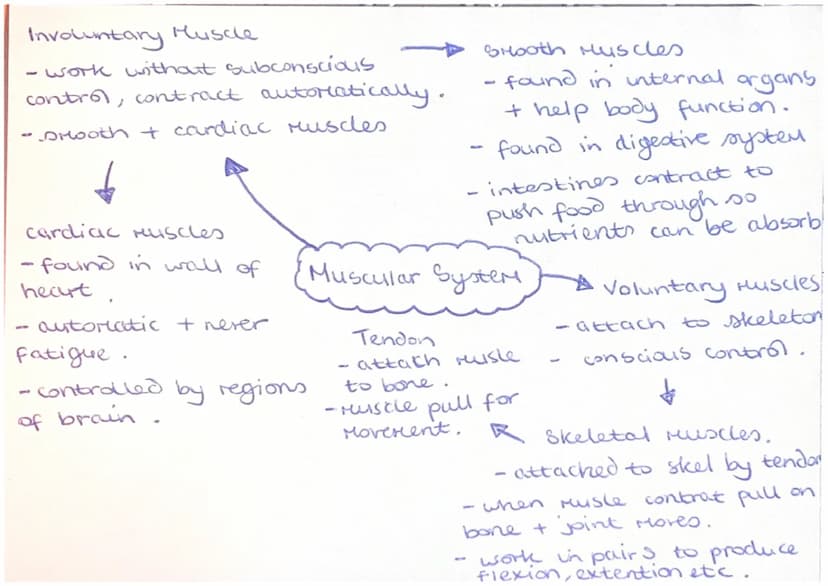 Involuntary Muscle
- work without subconscious
control, contract automatically.
- smooth + cardiac muscles
Smooth Muscles
- found in internal organs
+ help body function.
- found in digestive system
- intestines contract to
push food through so
nutrients can be absorb
cardiac muscles
- found in wall of
heart.
- automatic + never
fatigue.
- controlled by regions
of brain.
Muscular System
Voluntary Muscles
- attach to skeleton
- conscious control.
Tendon
- attach musle
to bone.
- Muscle pull for
movement.
Skeletal Muscles.
- attached to skel by tendon
- when musle contrat pull on
bone + joint moves.
- work in pairs to produce
flexion, extention etc.